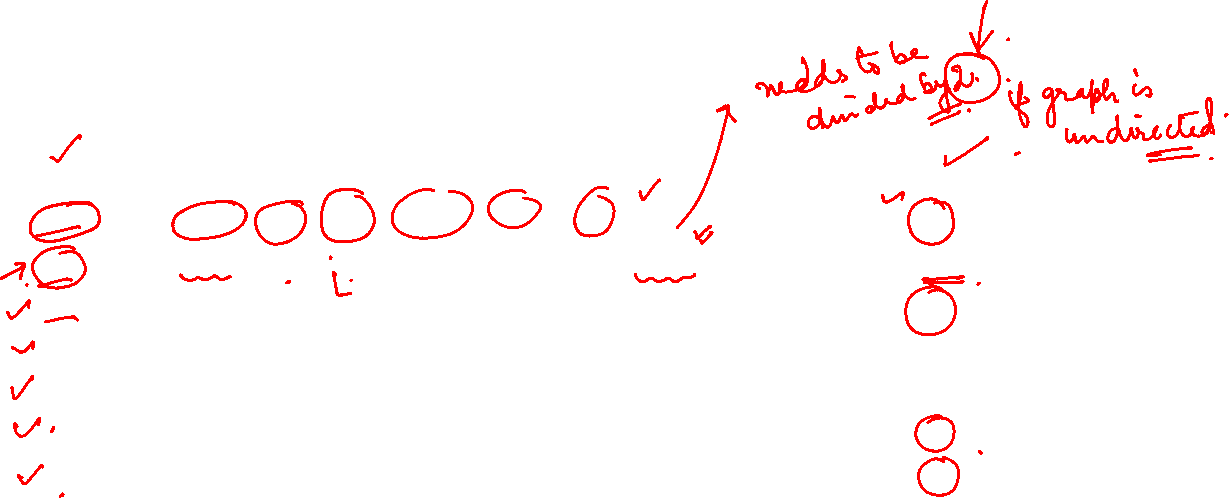 needs to be
divided by 2.
if graph is
undirected.